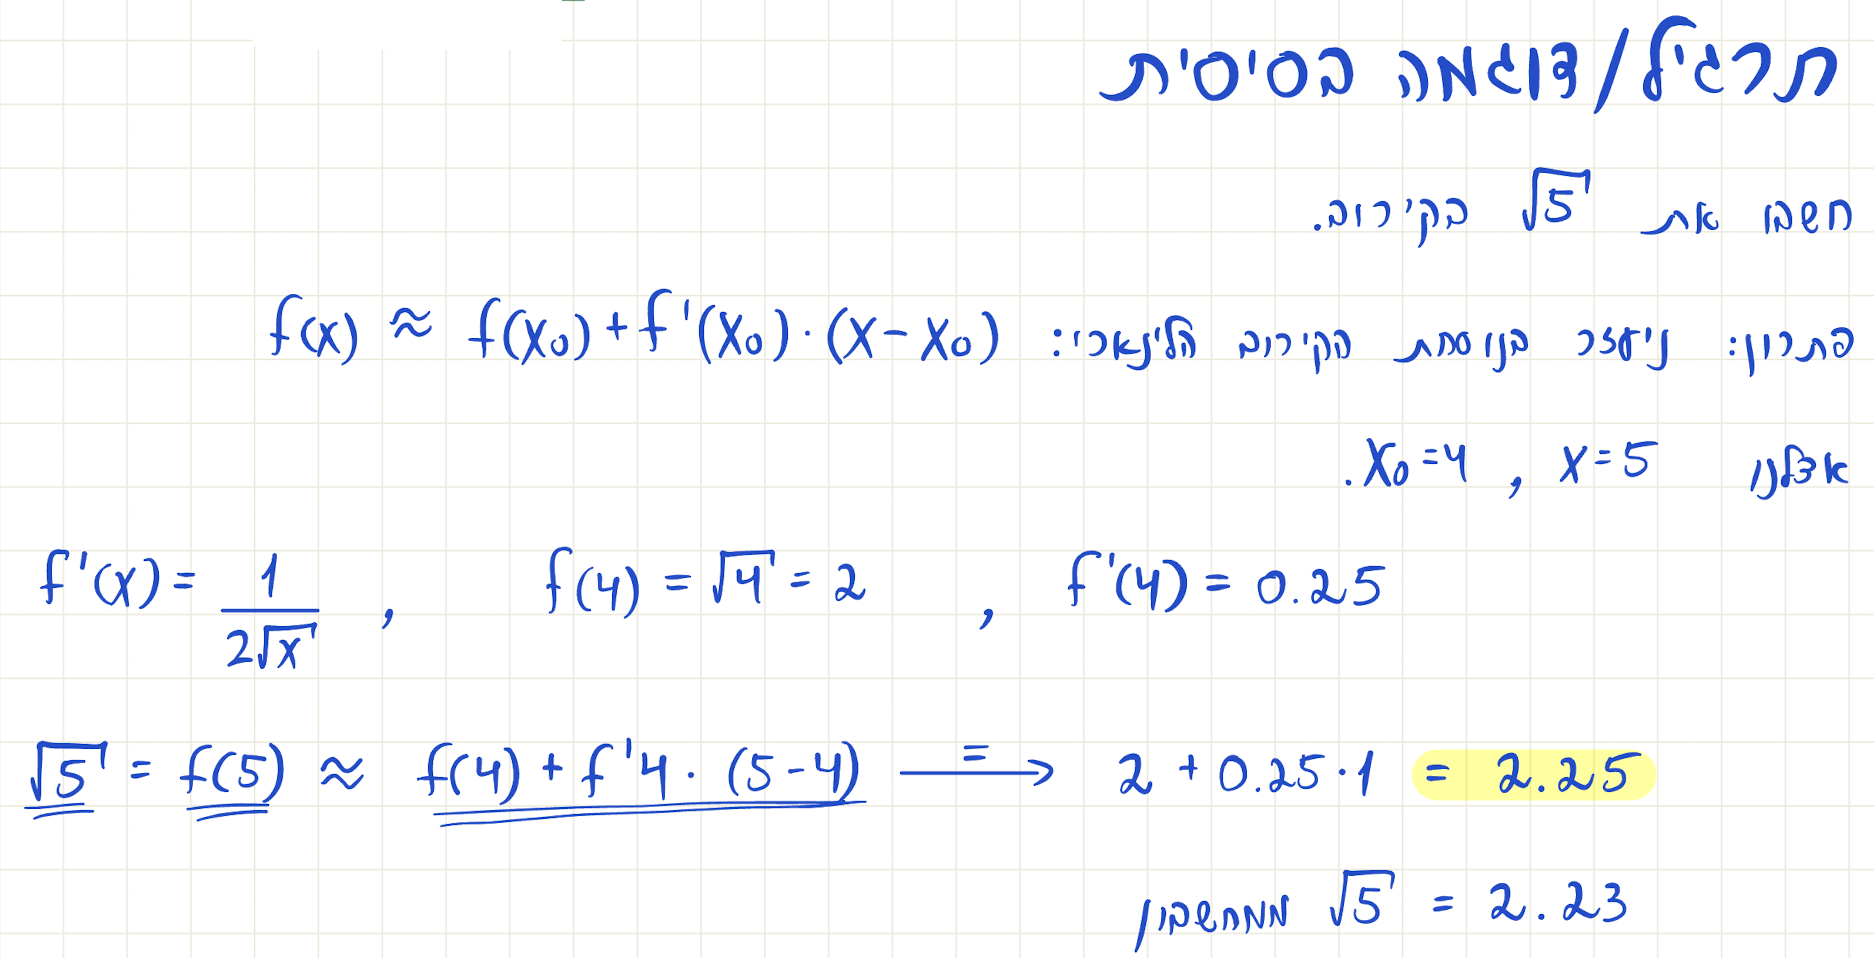 תרגיל/דוגמה בסיסית
חשבו את √5 בקירוב.
פתרון: ניעזר בנוסחת הקירוב הלינארי: f(x) ≈ f(x₀) + f'(x₀)·(x - x₀)
אצלנו x=5 , x₀=4.
f'(x) = 1/(2√x) , f(4) = √4 = 2 , f'(4) = 0.25
√5 = f(5) ≈ f(4) + f'4 · (5-4) ⟶ = 2 + 0.25·1 = 2.25
ממחשבון √5 = 2.23